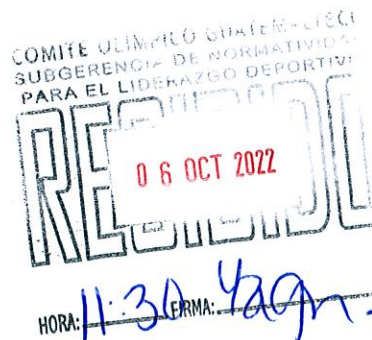 COMITE OLIMPICO
SUBGERENCIA DE NORMATIVID
PARA EL LIDERAZGO DEPORTIV
RECIBIDO
06 OCT 2022
HORA: 11:30 FIRMA: